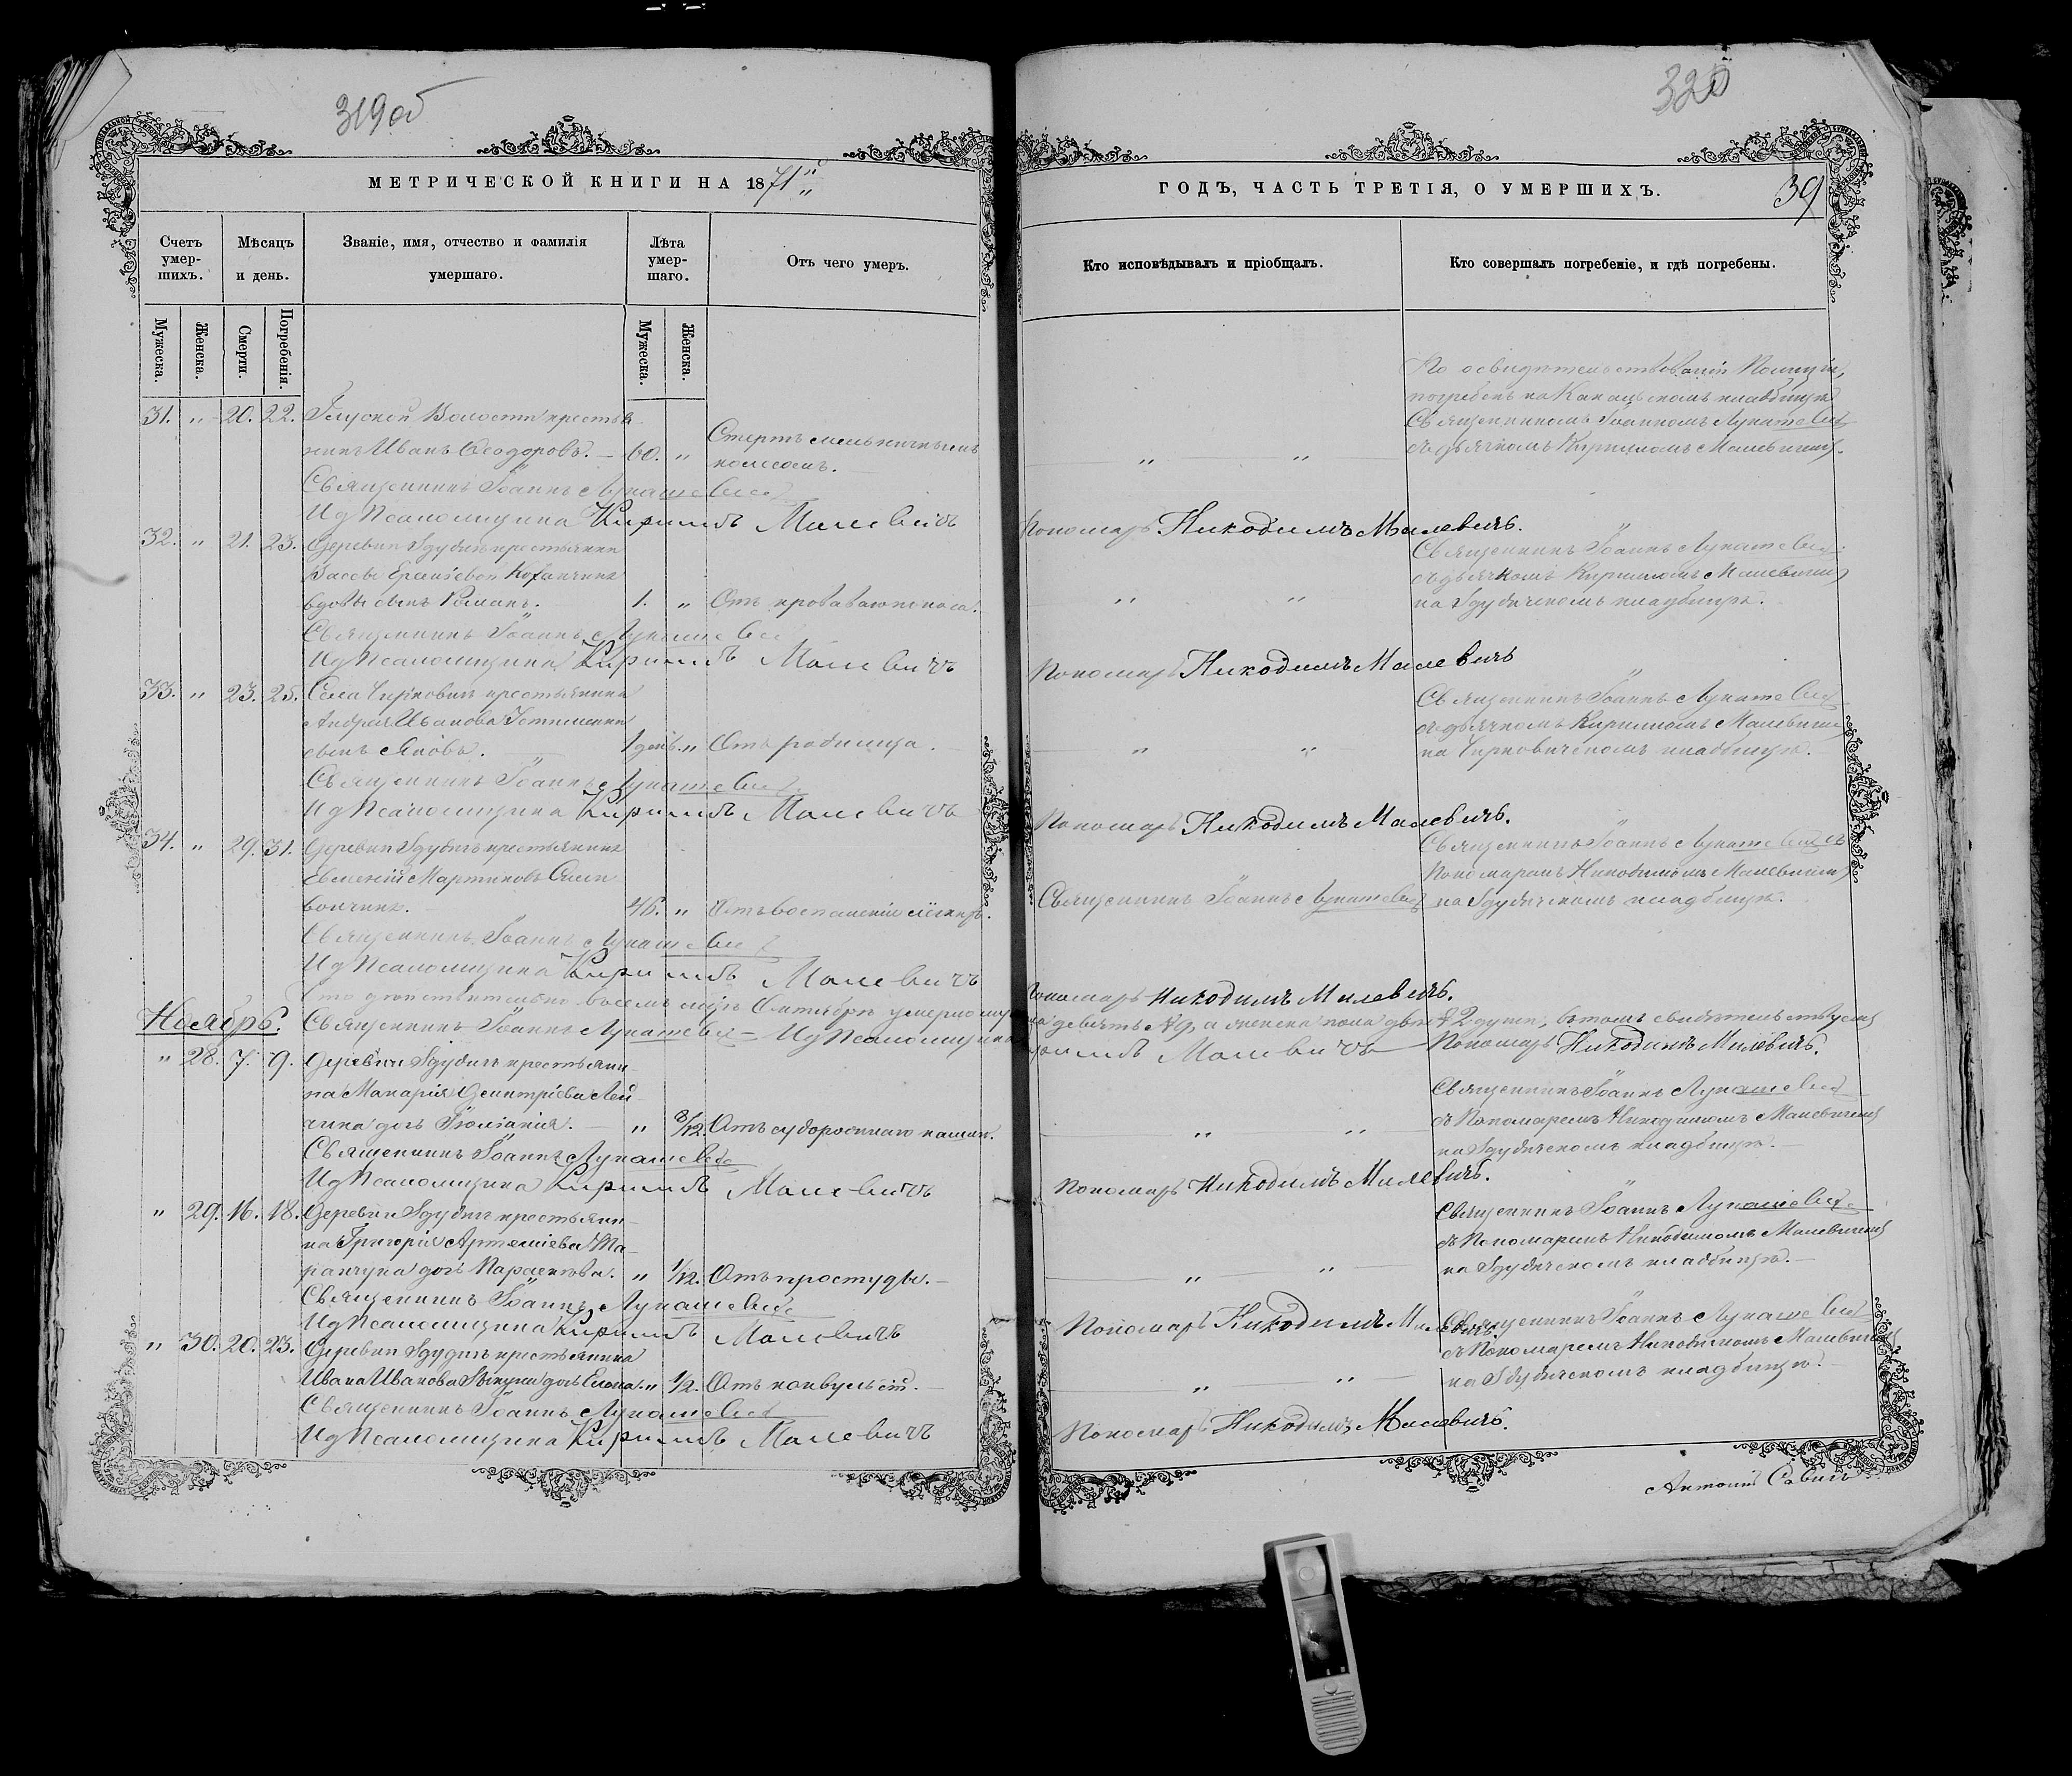 319 об
МЕТРИЧЕСКОЙ КНИГИ НА 1871
Счетъ умершихъ.
Мѣсяцъ и день.
Званіе, имя, отчество и фамилія умершаго.
Лѣта умершаго.
Отъ чего умеръ.
Мужеска.
Женска.
Смерти.
Погребенія.
Мужеска.
Женска.
31. " 20. 22. Глуской Волости крестья
нинъ Иванъ Ѳеодоровъ. 60. " Стертъ мельничнымъ
колесомъ.
Священникъ Іоаннъ Лукашевичъ
Ид Псаломщика Кириллъ Малевичъ
32. " 21. 23. Деревни Здудичъ крестьянки
вдовы сынъ Романъ. 1. " Отъ кроваваго поноса.
Священникъ Іоаннъ Лукашевичъ
Ид Псаломщика Кириллъ Малевичъ
33. " 23. 25. Села Чирковичъ крестьянина
Андрея Иванова
сынъ Яковъ. 1 день. " Отъ родимца.
Священникъ Іоаннъ Лукашевичъ
Ид Псаломщика Кириллъ Малевичъ
34. " 29. 31. Деревни Здудичъ крестьянинъ
Евмений Мартиновъ
46. " Отъ воспаленія легкихъ.
Священникъ Іоаннъ Лукашевичъ
Ид Псаломщика Кириллъ Малевичъ
Что действительно въ семъ месяцѣ Октябрѣ умерло
Ноябрь.
Священникъ Іоаннъ Лукашевичъ Ид Псаломщика
" 28. 7. 9. Деревни Здудичъ крестьяни
на Макарія Димитріева Лей
чика дочь Іюліанія. " 8/12. Отъ судорожнаго кашля.
Священникъ Іоаннъ Лукашевичъ
Ид Псаломщика Кириллъ Малевичъ
" 29. 16. 18. Деревни Здудичъ крестьяни
на Григорія Артеміева Та
ранчука дочь Параскева. " 1/12. Отъ простуды.
Священникъ Іоаннъ Лукашевичъ
Ид Псаломщика Кириллъ Малевичъ
" 30. 20. 23. Деревни Здудичъ крестьянина
Ивана Иванова дочь Елена. " 1/2. Отъ конвульсій.
Священникъ Іоаннъ Лукашевичъ
Ид Псаломщика Кириллъ Малевичъ
320
ГОДЪ, ЧАСТЬ ТРЕТІЯ, О УМЕРШИХЪ.
39
Кто исповѣдывалъ и пріобщалъ.
Кто совершалъ погребеніе, и гдѣ погребены.
По освидѣтельствованіи Полиціи,
погребенъ на кладбищѣ
Священникомъ Іоанномъ Лукашевичемъ
съ дьячкомъ Кирилломъ Малевичемъ.
" "
Пономарь Никодимъ Малевичъ.
Священникъ Іоаннъ Лукашевичъ
съ дьячкомъ Кирилломъ Малевичемъ
" " на Здудичскомъ кладбищѣ.
Пономарь Никодимъ Малевичъ
Священникъ Іоаннъ Лукашевичъ
съ дьячкомъ Кирилломъ Малевичемъ
" " на Чирковичскомъ кладбищѣ.
Пономарь Никодимъ Малевичъ.
Священникъ Іоаннъ Лукашевичъ съ
Пономаремъ Никодимомъ Малевичемъ
Священникъ Іоаннъ Лукашевичъ на Здудичскомъ кладбищѣ.
Пономарь Никодимъ Малевичъ.
девять № 9, а женска пола двѣ № 2 души, въ томъ свидѣтельствуемъ
Кириллъ Малевичъ Пономарь Никодимъ Малевичъ.
Священникъ Іоаннъ Лукашевичъ
съ Пономаремъ Никодимомъ Малевичемъ
" " на Здудичскомъ кладбищѣ.
Пономарь Никодимъ Малевичъ.
Священникъ Іоаннъ Лукашевичъ
съ Пономаремъ Никодимомъ Малевичемъ
" " на Здудичскомъ кладбищѣ.
Пономарь Никодимъ Малевичъ.
Священникъ Іоаннъ Лукашевичъ
съ Пономаремъ Никодимомъ Малевичемъ
" " на Здудичскомъ кладбищѣ.
Пономарь Никодимъ Малевичъ.
Антоній Савичъ